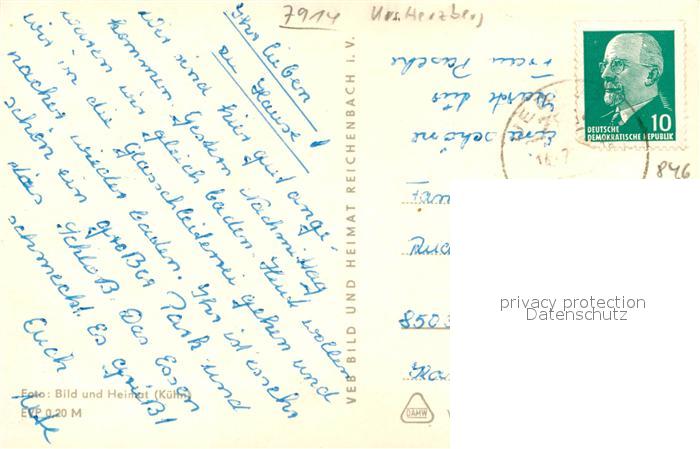 7914 Krs. Herzberg
Ihr lieben
zu Hause!
Wir sind hier gut ange-
kommen. Gestern Nachmittag
waren wir gleich baden. Heut wollen
wir in die Glasschleiferei gehen und
nacher wieder baden. Ihr ist es sehr
schön ein großer Park und
das Schloß. Das Essen
schmeckt. Es grüßt
Euch
Ute
Foto: Bild und Heimat (Kühn)
EVP 0.20 M
VEB BILD UND HEIMAT REICHENBACH I. V.
Frau Pasche
Eine schöne
10
DEUTSCHE
DEMOKRATISCHE REPUBLIK
846
Fam
8503
DAMW
V
privacy protection
Datenschutz